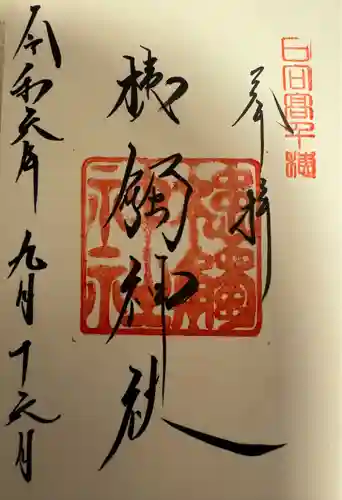 日向高千穂
奉拝
槵觸神社
槵觸神社
令和六年九月十六日